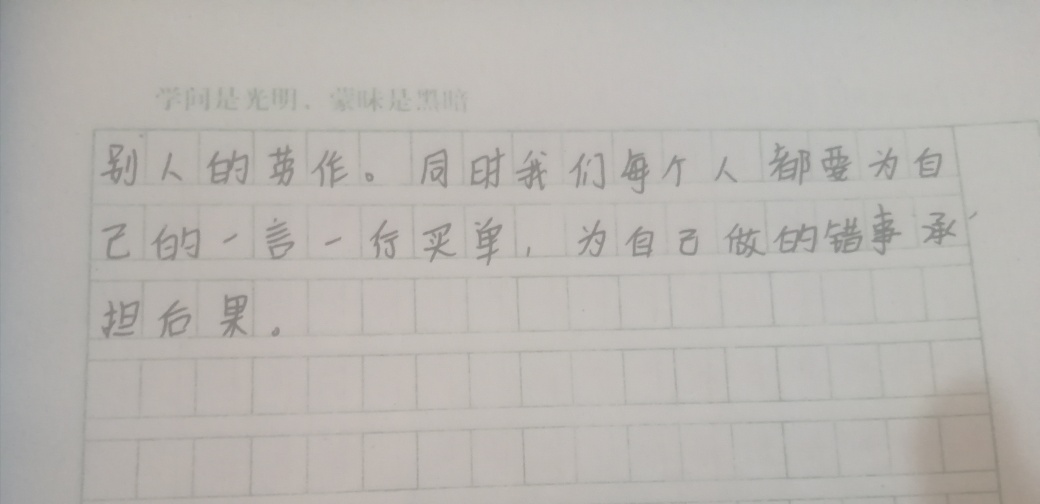 学问是光明，蒙昧是黑暗
别人的劳作。同时我们每个人都要为自
己的一言一行买单，为自己做的错事承
担后果。